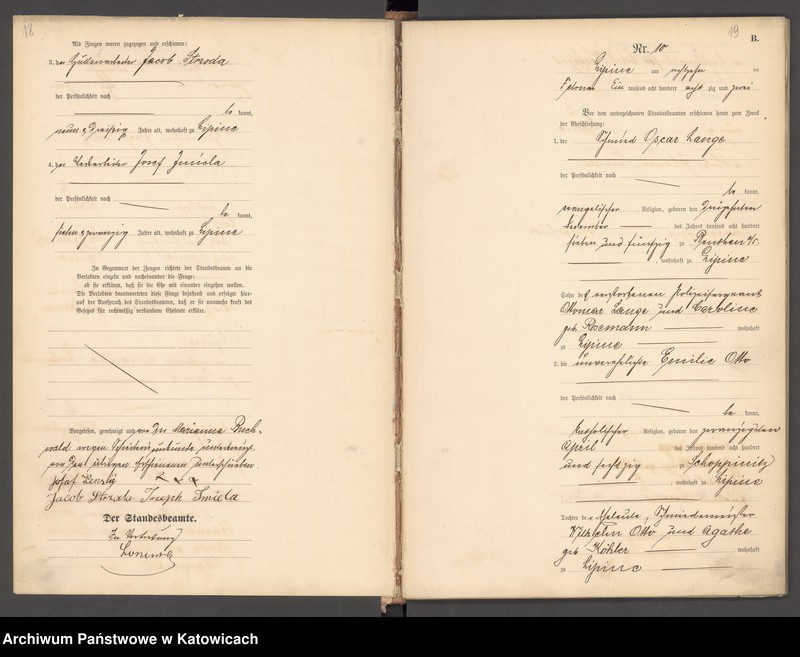 18
Als Zeugen waren zugezogen und erschienen:
3. der Hüttenarbeiter Jacob Stroda
der Persönlichkeit nach
be kannt,
neun u dreißig Jahre alt, wohnhaft zu Lipine
4. der Josef Imiela
der Persönlichkeit nach
be kannt,
sieben u zwanzig Jahre alt, wohnhaft zu Lipine
In Gegenwart der Zeugen richtete der Standesbeamte an die
Verlobten einzeln und nacheinander die Frage:
ob sie erklären, daß sie die Ehe mit einander eingehen wollen.
Die Verlobten beantworteten diese Frage bejahend und erfolgte hier-
auf der Ausspruch des Standesbeamten, daß er sie nunmehr kraft des
Gesetzes für rechtmäßig verbundene Eheleute erkläre.
Vorgelesen, genehmigt und von der Marianna Buch-
wald wegen
von den übrigen unterschrieben
Josef
Jacob Joseph Imiela
Der Standesbeamte.
In Vertretung
19
B.
Nr. 10
Lipine am achtzehn ten
Februar Ein tausend acht hundert acht zig und zwei
Vor dem unterzeichneten Standesbeamten erschienen heute zum Zweck
der Eheschließung:
1. der Schmied Oscar Lange
der Persönlichkeit nach
be kannt,
evangelischer Religion, geboren den dreizehnten
Dezember des Jahres tausend acht hundert
sieben und fünfzig zu Beuthen o/s.
, wohnhaft zu Lipine
Sohn des verstorbenen Polizeisergeant
Ottomar Lange und Caroline
geb. Rosemann wohnhaft
zu Lipine
2. die unverehelichte Emilie Otto
der Persönlichkeit nach
be kannt,
katholischer Religion, geboren den zwanzigsten
April des Jahres tausend acht hundert
und sechzig zu Schoppinitz
, wohnhaft zu Lipine
Tochter der Eheleute, Schmiedemeister
Wilhelm Otto und Agathe
geb Köhler wohnhaft
zu Lipine
Archiwum Państwowe w Katowicach